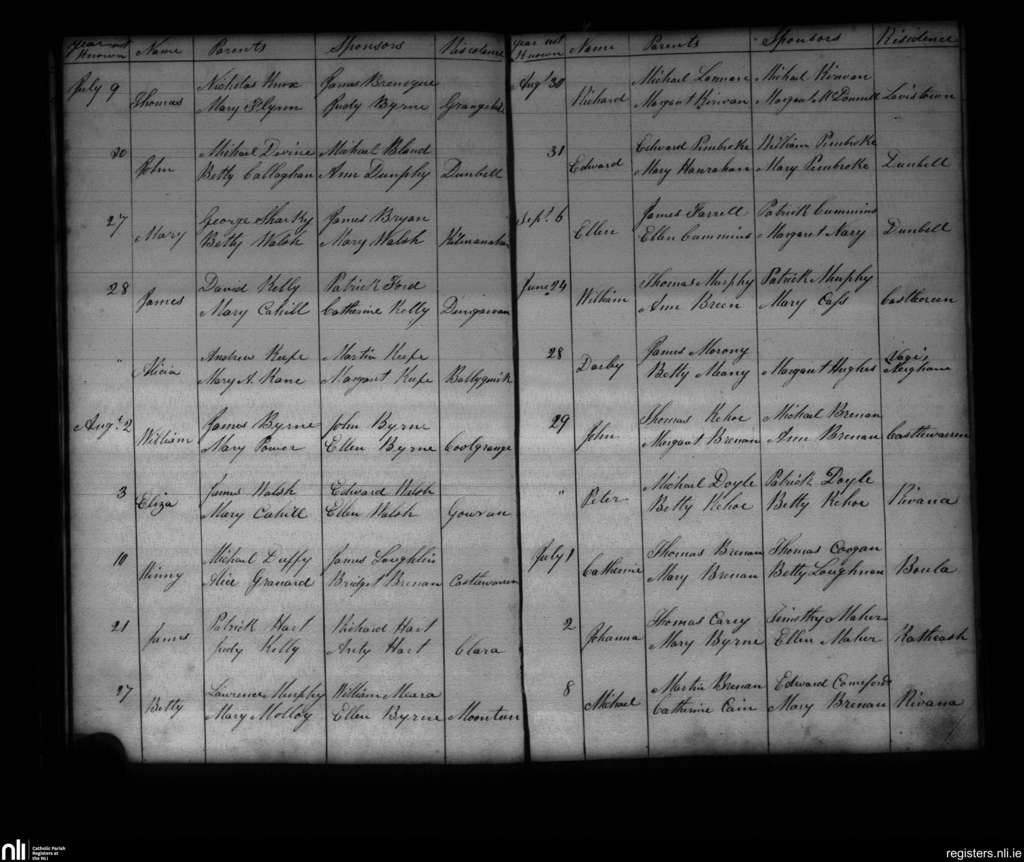 Year not Known Name Parents Sponsors Residence
July 9 Thomas Nicholas Knox James
Mary Judy Byrne
20 John Michael Devine Michael Bland
Betty Callaghan Ann Dunphy Dunbell
27 Mary George Sharky James Bryan
Betty Walsh Mary Walsh Kilmanahan
28 James David Kelly Patrick Ford
Mary Cahill Catherine Kelly Dungarvan
" Alicia Andrew Keefe Martin Keefe
Mary A. Kane Margaret Keefe
Augt. 2 William James Byrne John Byrne
Mary Power Ellen Byrne Coolgrange
3 Eliza James Walsh Edward Walsh
Mary Cahill Ellen Walsh Gowran
10 Winny Michael Duffy James Loughlin
Alice Granard Bridget Brenan
21 James Patrick Hart Richard Hart
Judy Kelly Hart Clara
27 Betty Lawrence Murphy William Meara
Mary Molloy Ellen Byrne
Year not Known Name Parents Sponsors Residence
Augt 30 Richard Michael Lennon Michael Kirwan
Margaret Kirwan Margaret McDonnell Lavistown
31 Edward Edward Pembroke William Pembroke
Mary Hanrahan Mary Pembroke Dunbell
Sept. 6 Ellen James Farrell Patrick Cummins
Ellen Cummins Margaret Nary Dunbell
June 24 William Thomas Murphy Patrick Murphy
Ann Breen Mary Cass
28 Darby James Morony
Betty Meany Margaret Hughes
29 John Thomas Kehoe Michael Brenan
Margaret Brennan Ann Brenan Castlewarren
" Peter Michael Doyle Patrick Doyle
Betty Kehoe Betty Kehoe Rivana
July 1 Catherine Thomas Brenan Thomas Coogan
Mary Brenan Betty Loughman Boula
2 Johanna Thomas Carey Timothy Maher
Mary Byrne Ellen Maher Ratheash
8 Michael Martin Brenan Edward Comeford
Catherine Cain Mary Brenan Rivana
nli Catholic Parish
Registers at
the NLI
registers.nli.ie